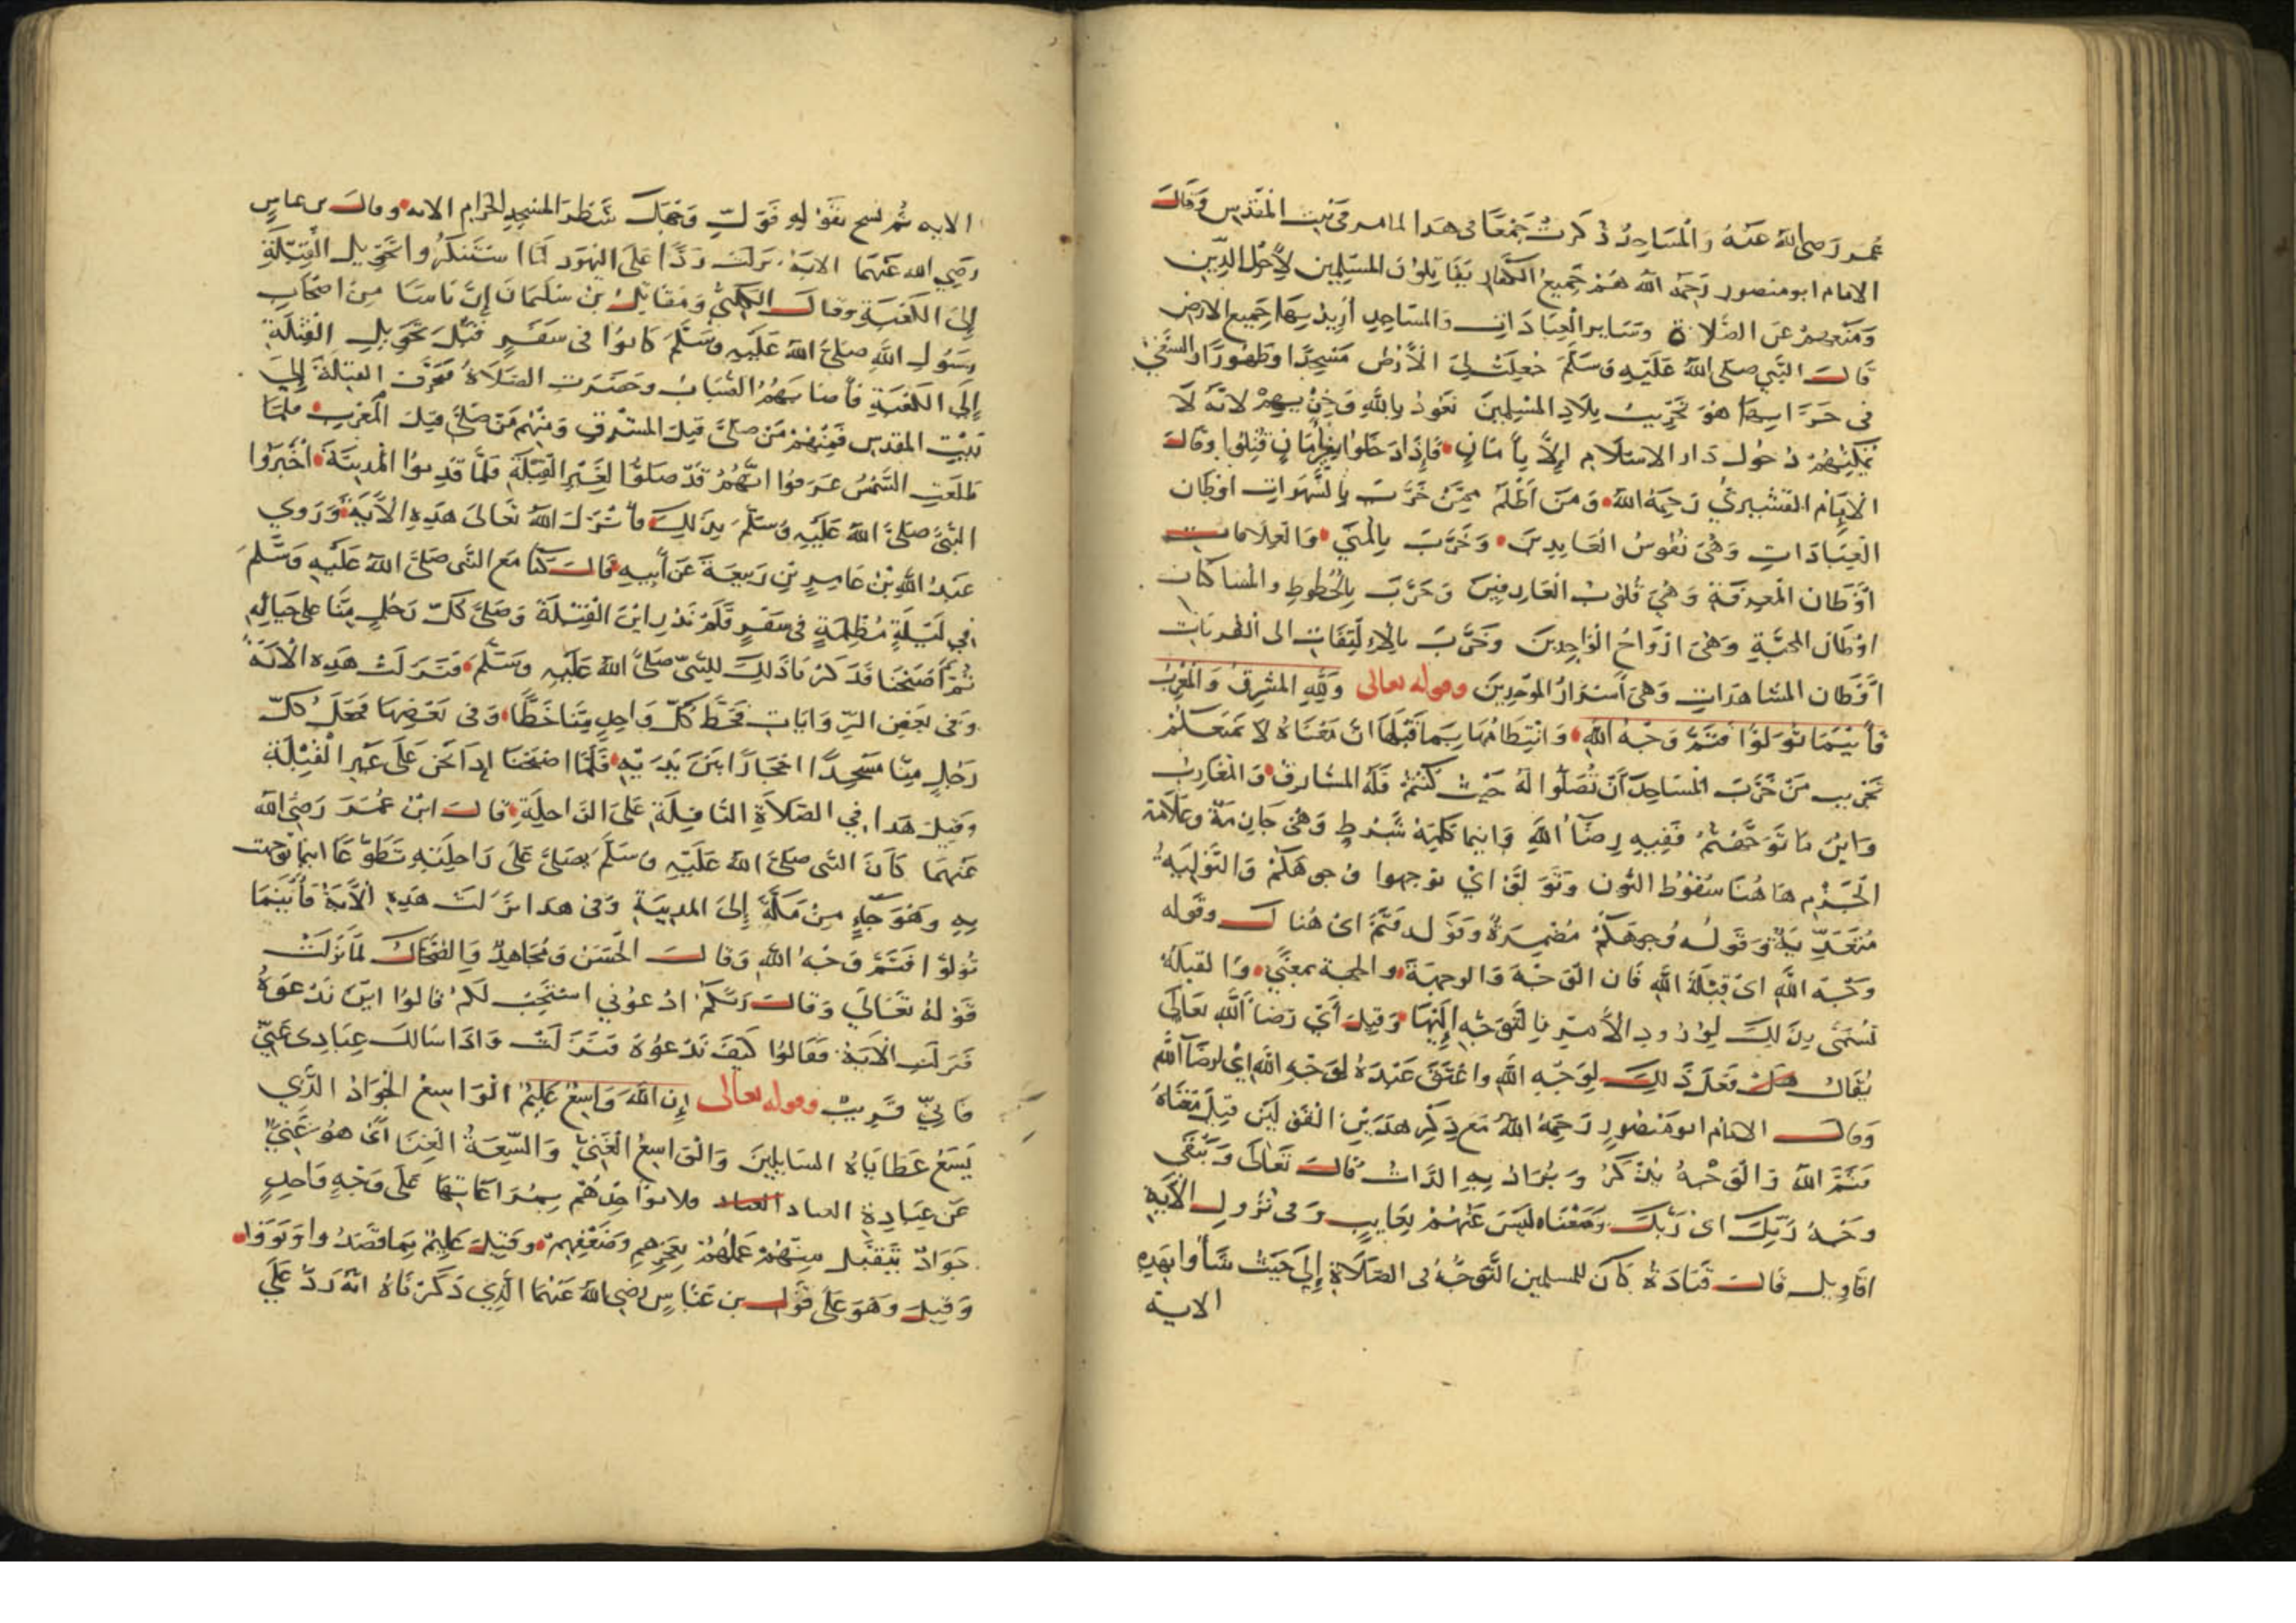 عمر رضي الله عنه والمساجد ذكرت جمعا في هذا لما مر في بيت المقدس وقال
الامام ابو منصور رحمه الله هم جميع الكفار يقاتلون المسلمين لأجل الدين
ومنعهم عن الصلاة وساير العبادات والمساجد أريد بها جميع الارض
قال النبي صلى الله عليه وسلم جعلت لي الأرض مسجدا وطهورا والسعي
في خرابها هو تخريب بلاد المسلمين نعوذ بالله وخزيهم لانه لا
يمكنهم دخول دار الاسلام إلا بأمان فإذا دخلوا بغير أمان قتلوا وقال
الامام القشيري رحمه الله ومن أظلم ممن خرب بالشهوات اوطان
العبادات وهي نفوس العابدين وخرب بالمني والعلامات
أوطان المعرفة وهي قلوب العارفين وخرب بالحظوظ والمساكات
اوطان المحبة وهي ارواح الواجدين وخرب بالالتفات الى القربات
أوطان المشاهدات وهي أسرار الموحدين وقوله تعالى ولله المشرق والمغرب
فأينما تولوا فثم وجه الله وانتظامها بما قبلها ان معناه لا تمنعكم
تخريب من خرب المساجد أن تصلوا له حيث كنتم فله المشارق والمغارب
واين ما توجهتم ففيه رضاء الله واينما كلمة شرط وهي جازمة وعلامة
الجزم هاهنا سقوط النون وتولوا اي توجهوا وجوهكم والتولية
متعدية وقوله وجوهكم مضمرة وقوله فثم اي هناك وقوله
وجه الله اي قبلة الله فان الوجه والوجهة والجهة بمعنى والقبلة
تسمى بذلك لورود الأمر بالتوجه إليها وقيل أي رضا الله تعالى
يقال هل فعل ذلك لوجه الله واعتق عبده لوجه الله اي لرضاء الله
وقال الامام ابو منصور رحمه الله مع ذكر هذين القولين قيل معناه
فثم الله والوجه يذكر ويراد به الذات قال تعالى ويبقى
وجه ربك اي ربك ومعناه ليس عنهم بغايب وفي نزول الآية
اقاويل قال قتادة كان للمسلمين التوجه في الصلاة إلى حيث شأوا بهذه
الاية
الايه ثم نسخ بقوله فول وجهك شطر المسجد الحرام الايه وقال بن عباس
رضي الله عنهما الاية نزلت ردا على اليهود لما استنكروا تحويل القبلة
إلى الكعبة وقال الكلبي ومقاتل بن سليمان إن ناسا من اصحاب
رسول الله صلى الله عليه وسلم كانوا في سفر قبل تحويل القبلة
إلى الكعبة فأصابهم الضباب وحضرت الصلاة فعرف القبلة إلى
بيت المقدس فمنهم من صلى قبل المشرق ومنهم من صلى قبل المغرب فلما
طلعت الشمس عرفوا انهم قد صلوا لغير القبلة فلما قدموا المدينة أخبروا
النبي صلى الله عليه وسلم بذلك فأنزل الله تعالى هذه الآية وروي
عبد الله بن عامر بن ربيعة عن أبيه قال كنا مع النبي صلى الله عليه وسلم
في ليلة مظلمة في سفر فلم ندر اين القبلة وصلى كل رجل منا على حياله
ثم أصبحنا فذكرنا ذلك للنبي صلى الله عليه وسلم فنزلت هذه الاية
وفي بعض الروايات فخط كل واحد منا خطا وفي بعضها فجعل كل
رجل منا مسجدا احجارا بين يديه فلما اصبحنا إذا نحن على غير القبلة
وقيل هذا في الصلاة النافلة على الراحلة قال ابن عمر رضي الله
عنهما كان النبي صلى الله عليه وسلم يصلي على راحلته تطوعا اينما توجهت
به وهو جاء من مكة إلى المدينة وفي هذا نزلت هذه الآية فأينما
تولوا فثم وجه الله وقال الحسن ومجاهد والضحاك لما نزلت
قوله تعالى وقال ربكم ادعوني استجب لكم قالوا اين ندعوه
فنزلت الآية فقالوا كيف ندعوه فنزلت واذا سالك عبادي عني
فاني قريب وقوله تعالى إن الله واسع عليم الواسع الجواد الذي
يسع عطاياه السايلين والواسع الغني والسعة الغنا اي هو غني
عن عبادة العباد العباد فلا يؤاخذهم بمراعاتها على وجه واحد
جواد يتقبل منهم عملهم بعجزهم وضعفهم وقيل عليم بما قصدوا ونووا
وقيل وهو على قول بن عباس رضي الله عنهما الذي ذكرناه انه رد على